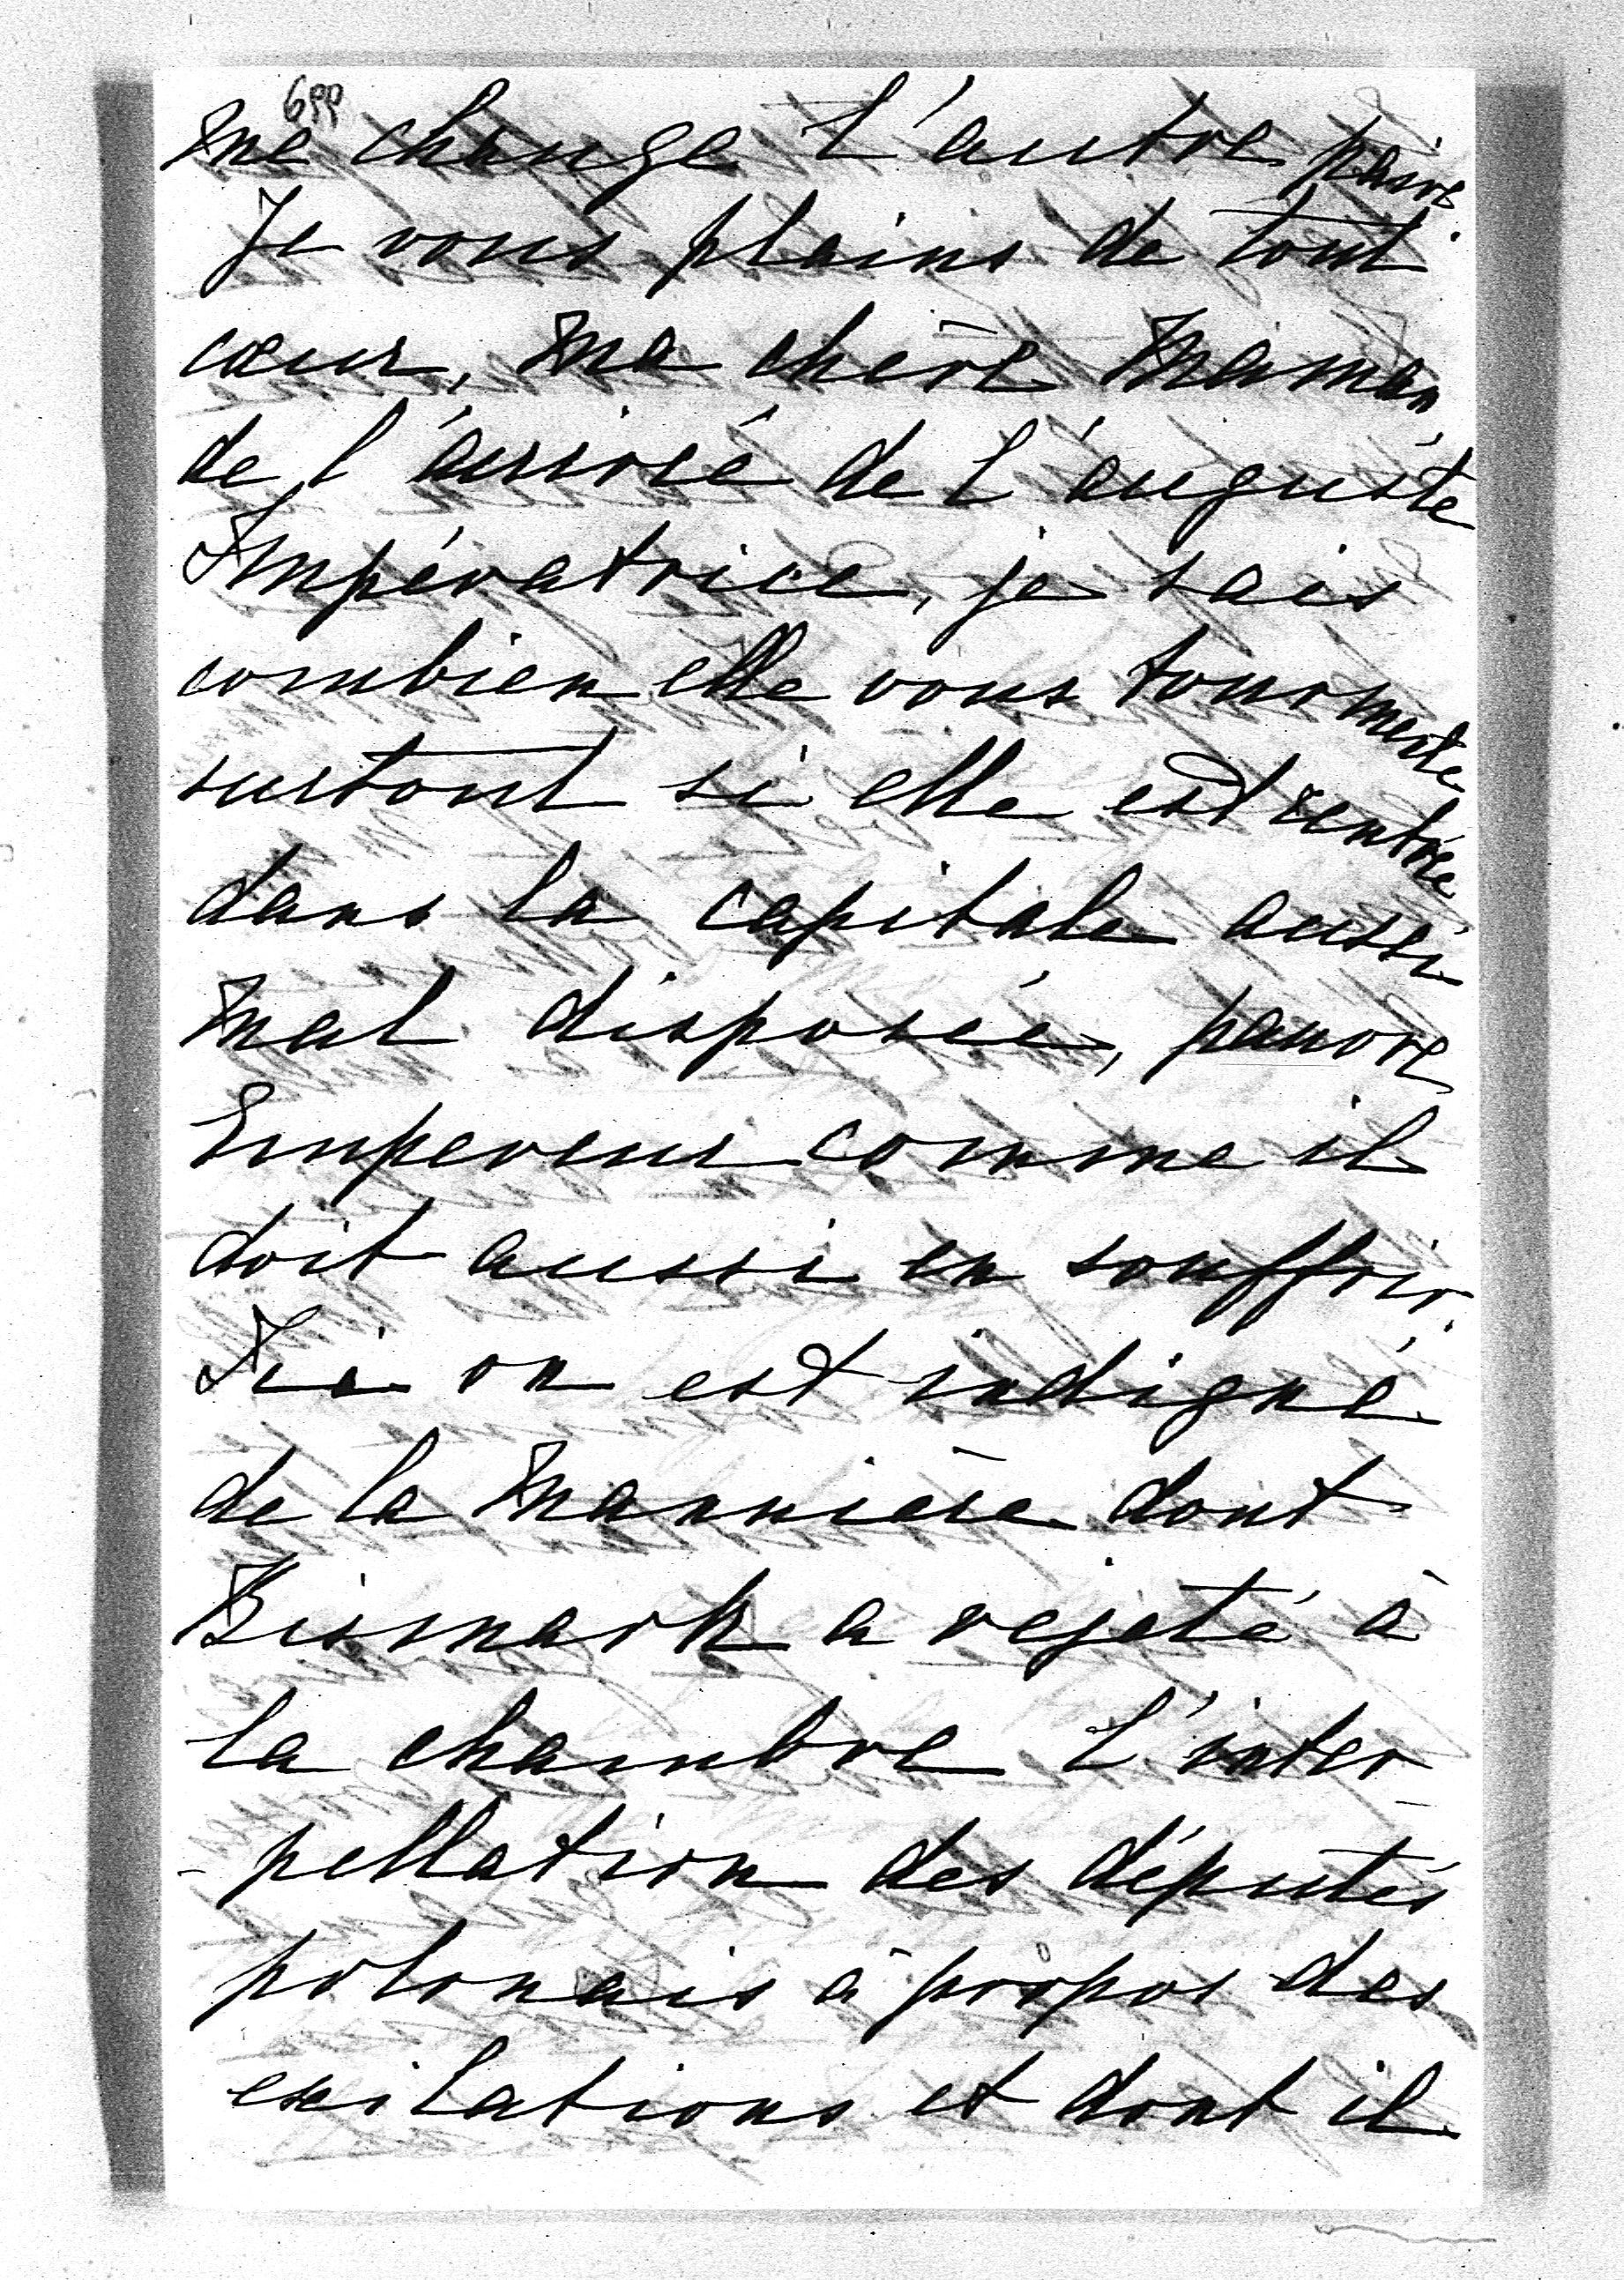 699
me change l'autre paire.
Je vous plains de tout
cœur, ma chère Maman
de l'arrivé de l'auguste
Impératrice, je sais
combien elle vous tourmente
surtout si elle est rentrée
dans la capitale aussi
mal disposée, pauvre
Empereur comme il
doit aussi en souffrir.
Ici on est indigné
de la mannière dont
Bismark a rejeté à
la chambre l'inter-
-pellation des députés
polonais à propos des
exilations et dont il